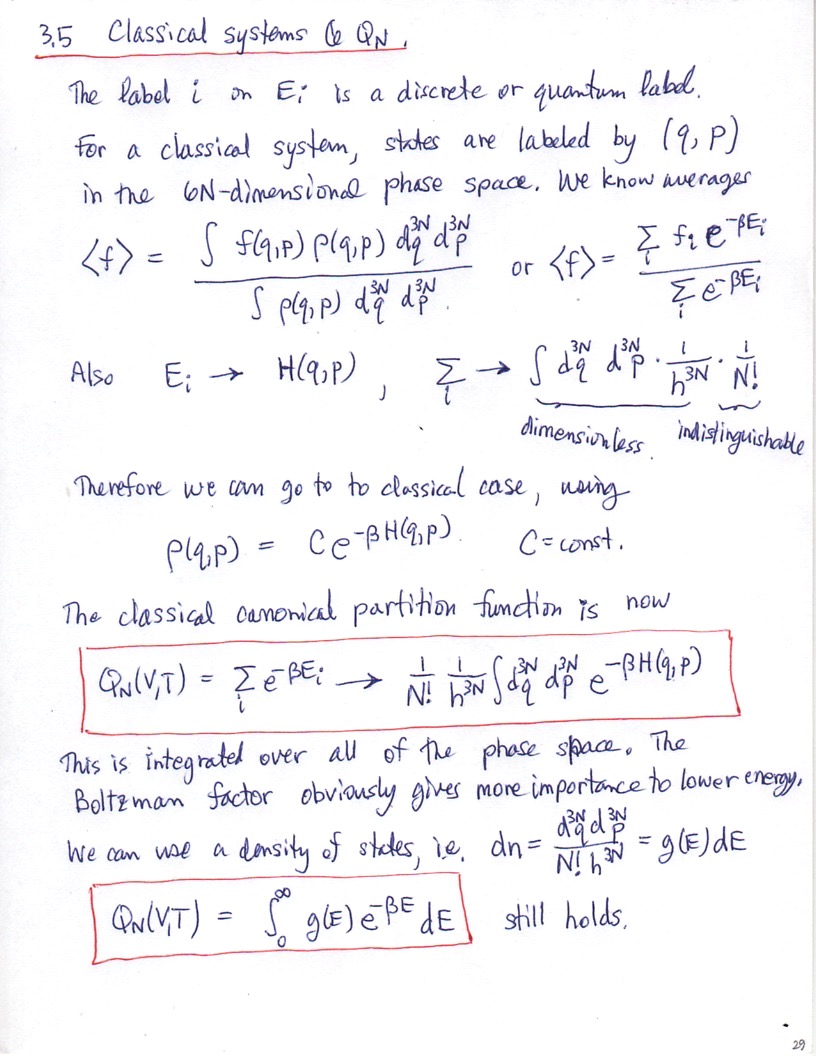 3.5 Classical systems & Q_N.
The label i on E_i is a discrete or quantum label.
For a classical system, states are labeled by (q, p)
in the 6N-dimensional phase space. We know averages
⟨f⟩ = ∫ f(q,p) ρ(q,p) d^{3N}q d^{3N}p / ∫ ρ(q,p) d^{3N}q d^{3N}p. or ⟨f⟩ = Σ_i f_i e^{-βE_i} / Σ_i e^{-βE_i}
Also E_i → H(q,p), Σ_i → ∫ d^{3N}q d^{3N}p · 1/h^{3N} · 1/N!
dimensionless. indistinguishable
Therefore we can go to to classical case, using
ρ(q,p) = C e^{-βH(q,p)}. C = const.
The classical canonical partition function is now
Q_N(V,T) = Σ_i e^{-βE_i} → 1/N! 1/h^{3N} ∫ d^{3N}q d^{3N}p e^{-βH(q,p)}
This is integrated over all of the phase space. The
Boltzman factor obviously gives more importance to lower energy.
We can use a density of states, i.e. dn = d^{3N}q d^{3N}p / N! h^{3N} = g(E) dE
Q_N(V,T) = ∫_0^∞ g(E) e^{-βE} dE still holds.
29